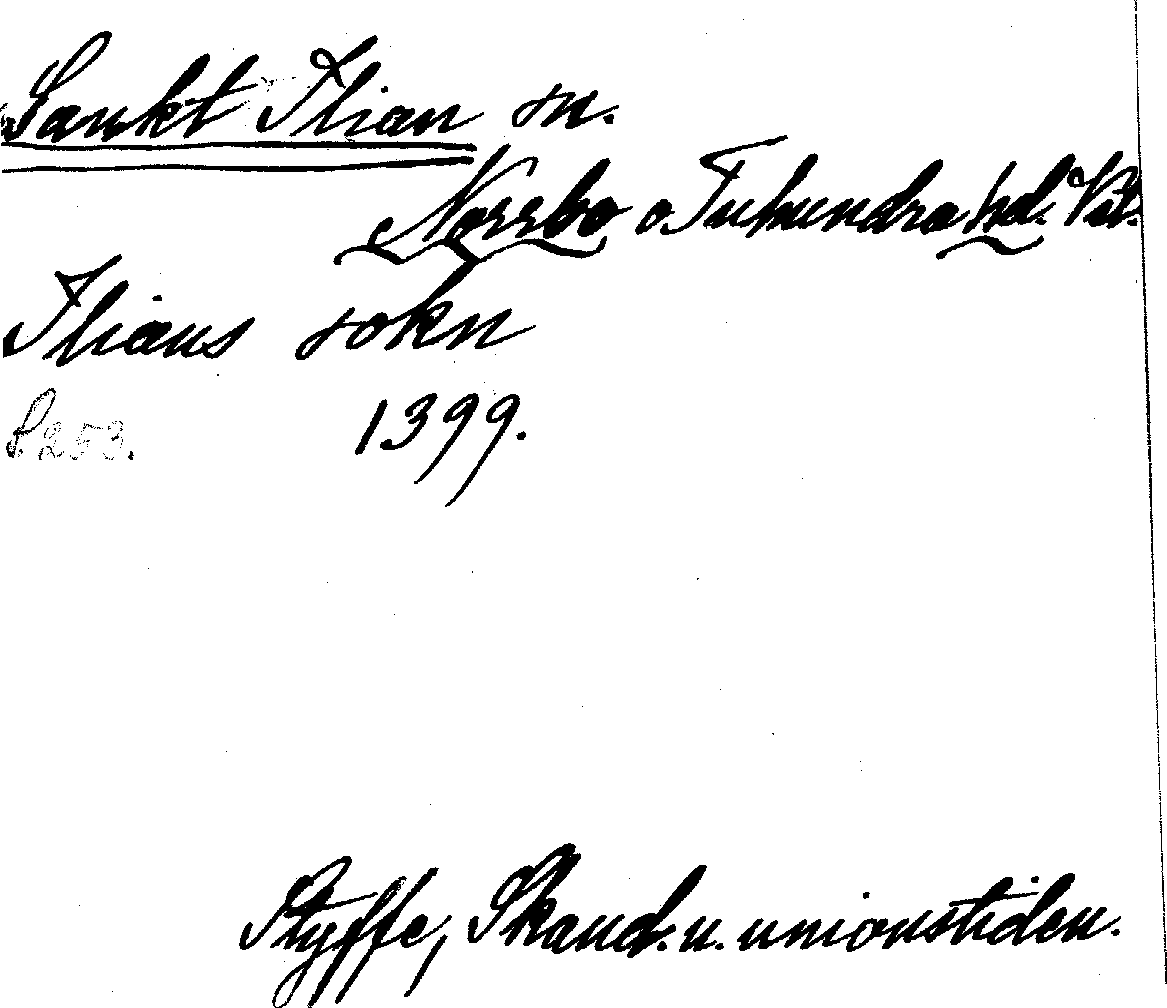 Sankt Ilian sn.
Norrbo o. Tuhundra hd. Vst.
Ilians sokn
S. 253. 1399.
Styffe, Skand. u. unionstiden.